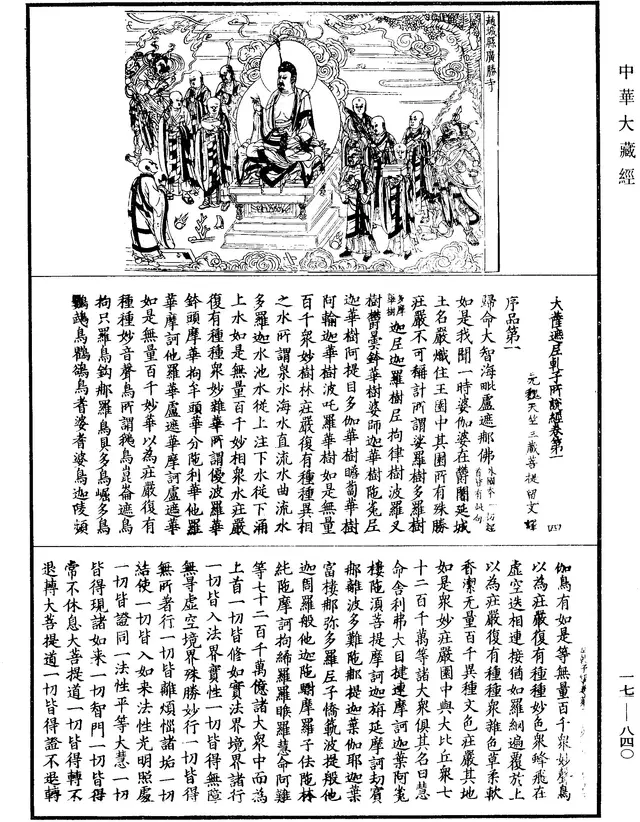 中華大藏經
一七—八四〇
趙城縣廣勝寺
大薩遮尼乾子所說經卷第一
元魏天竺三藏菩提留支譯
序品第一
歸命大智海毗盧遮那佛
如是我聞一時婆伽婆在鬱闍延城
王名嚴熾住王園中其園所有殊勝
莊嚴不可稱計所謂娑羅樹多羅樹
多摩羅樹迦尼迦羅樹尼拘律樹波羅叉
樹鬱曇鉢華樹婆師迦華樹陁菟尼
迦華樹阿提目多伽華樹瞻蔔華樹
阿輸迦華樹波吒羅華樹如是無量
百千衆妙樹林莊嚴復有種種異相
之水所謂泉水海水直流水曲流水
多羅迦水池水從上注下水從下涌
上水如是無量百千妙相泉水莊嚴
復有種種衆妙雜華所謂優波羅華
鉢頭摩華拘牟頭華分陁利華他羅
華摩訶他羅華盧遮華摩訶盧遮華
如是無量百千妙華以爲莊嚴復有
種種妙音聲鳥所謂鵝鳥崑崙遮鳥
拘只羅鳥鈎那羅鳥具多鳥崛多鳥
鸚鵡鳥鸜鵒鳥者婆者婆鳥迦陵頻
伽鳥有如是等無量百千衆妙聲鳥
以為莊嚴復有種種妙色衆蜂飛在
虛空迭相連接猶如羅網遍覆於上
以為莊嚴復有種種衆雜色草柔軟
香潔无量百千異種文色莊嚴其地
如是衆妙莊嚴園中與大比丘衆七
十二百千萬等諸大衆俱其名曰慧
命舍利弗大目揵連摩訶迦葉阿㝹
樓陁湏菩提摩訶迦旃延摩訶劫賓
那離波多難陁那提迦葉伽耶迦葉
富樓那弥多羅尼子憍範波提般他
迦周羅般他迦陁驃摩羅子佉陁林
紇陁摩訶拘絺羅羅睺羅慧命阿難
等七十二百千萬億諸大衆中而為
上首一切皆修如實法界境界諸行
一切皆入法界實性一切皆得無障
無㝵虛空境界殊勝妙行一切皆得
無所者行一切皆離煩惱諸垢一切
結使一切皆入如來法性光明照處
一切皆證同一法性平等大慧一切
皆得現諸如來一切智門一切皆得
常不休息大菩提道一切皆得轉不
退轉大菩提道一切皆得證不退轉